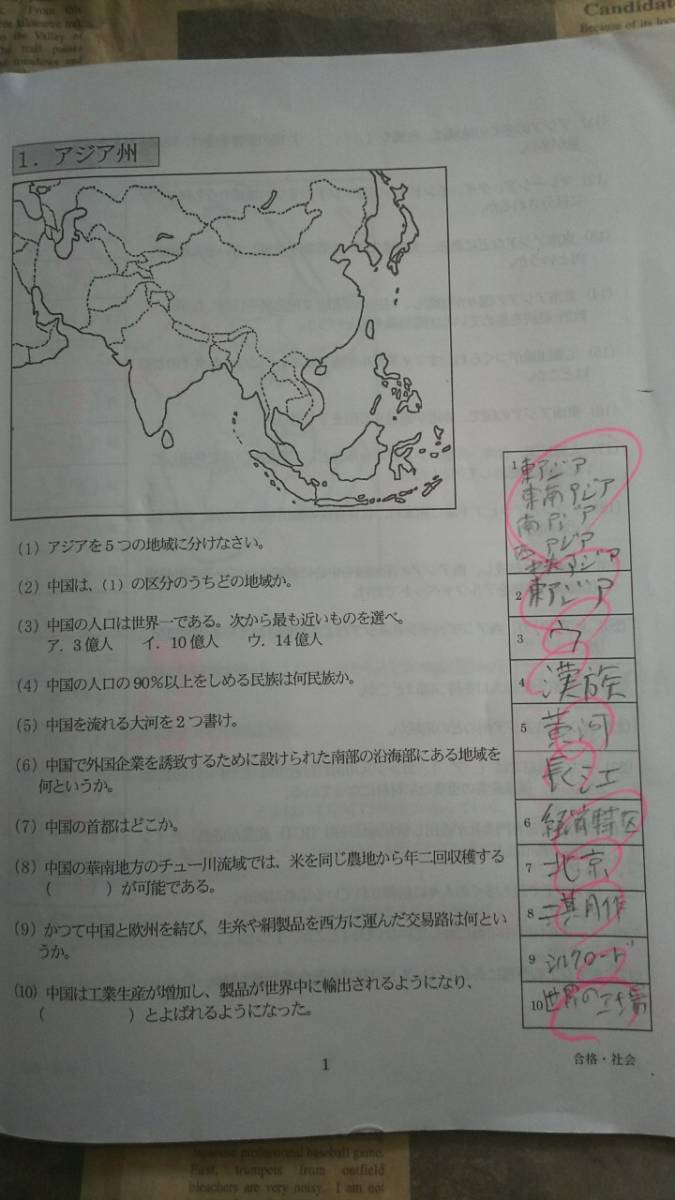 . From this
the Valley of
Candidat
Because of its loc
1．アジア州
(1) アジアを５つの地域に分けなさい。
(2) 中国は、(1) の区分のうちどの地域か。
(3) 中国の人口は世界一である。次から最も近いものを選べ。
ア．3億人 イ．10億人 ウ．14億人
(4) 中国の人口の90％以上をしめる民族は何民族か。
(5) 中国を流れる大河を２つ書け。
(6) 中国で外国企業を誘致するために設けられた南部の沿海部にある地域を
何というか。
(7) 中国の首都はどこか。
(8) 中国の華南地方のチュー川流域では、米を同じ農地から年二回収穫する
( ) が可能である。
(9) かつて中国と欧州を結び、生糸や絹製品を西方に運んだ交易路は何とい
うか。
(10) 中国は工業生産が増加し、製品が世界中に輸出されるようになり、
( ) とよばれるようになった。
1 東アジア
東南アジア
南アジア
西アジア
中央アジア
2 東アジア
3 ウ
4 漢族
5 黄河
長江
6 経済特区
7 北京
8 二期作
9 シルクロード
10 世界の工場
1
合格・社会
Japanese professional baseball game.
First, trumpets from outfield
bleachers are very noisy. I am not